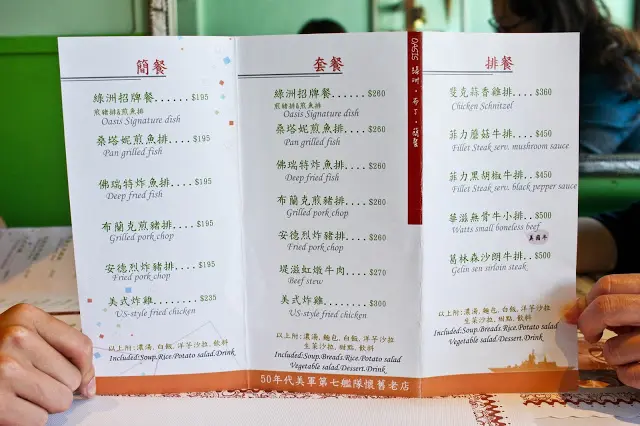 簡餐
綠洲招牌餐......$195
煎豬排&煎魚排
Oasis Signature dish
桑塔妮煎魚排....$195
Pan grilled fish
佛瑞特炸魚排....$195
Deep fried fish
布蘭克煎豬排....$195
Grilled pork chop
安德烈炸豬排....$195
Fried pork chop
美式炸雞........$235
US-style fried chicken
以上附:濃湯、麵包、白飯、洋芋沙拉、飲料
Included:Soup.Rice.Potato salad.Drink
套餐
綠洲招牌餐......$260
煎豬排&煎魚排
Oasis Signature dish
桑塔妮煎魚排....$260
Pan grilled fish
佛瑞特炸魚排....$260
Deep fried fish
布蘭克煎豬排....$260
Grilled pork chop
安德烈炸豬排....$260
Fried pork chop
堤滋虹燉牛肉....$270
Beef stew
美式炸雞........$300
US-style fried chicken
以上附:濃湯、麵包、白飯、洋芋沙拉
生菜沙拉、甜點、飲料
Included:Soup.Breads.Rice.Potato salad
Vegetable salad.Dessert.Drink
50年代美軍第七艦隊懷舊老店
OASIS 綠洲・布丁・簡餐
排餐
斐克蒜香雞排....$360
Chicken Schnitzel
菲力蘑菇牛排....$450
Fillet Steak serv. mushroom sauce
菲力黑胡椒牛排..$450
Fillet Steak serv. black pepper sauce
華滋無骨牛小排..$500
Watts small boneless beef
美國牛
葛林森沙朗牛排..$500
Gelin sen sirloin steak
以上附:濃湯、麵包、白飯、洋芋沙拉
生菜沙拉、甜點、飲料
Included:Soup.Breads.Rice.Potato salad
Vegetable salad.Dessert.Drink